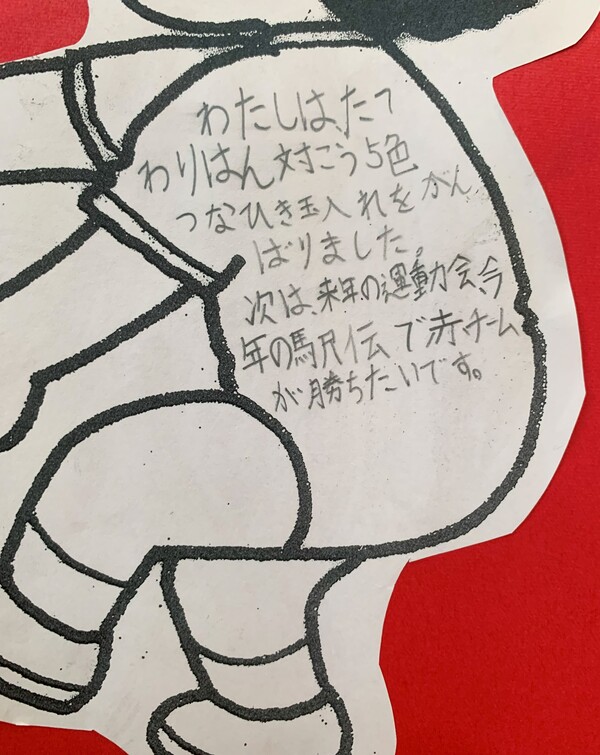 わたしは、たて
わりはん対こう5色
つなひき玉入れをがん
ばりました。
次は、来年の運動会、今
年の駅伝で赤チーム
が勝ちたいです。